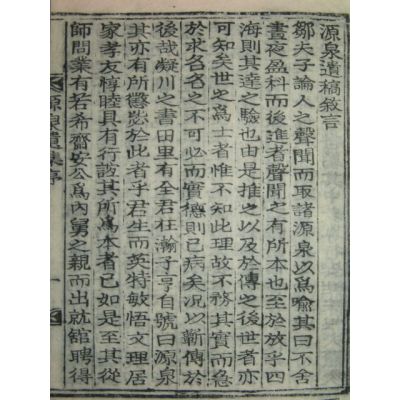 源泉遺稿敘言
鄒夫子論人之聲聞而取諸源泉以爲喩其曰不舍
晝夜盈科而後進者聲聞之有所本也至於放乎四
海則其達之驗也由是推之以及於傳之後世者亦
可知矣世之爲士者惟不知此理故不務其實而急
於求名名之不可必而實德則已病矣况以蘄傳於
後哉凝川之書田里有全君柱瀚子亨自號曰源泉
其亦有所懲於此者乎君生而英特敏悟文理居
家孝友惇睦具有行誼其所爲本者已如是至其從
師問業有若希齋安公爲內舅之親而出就舘聘得
源泉遺集序
一